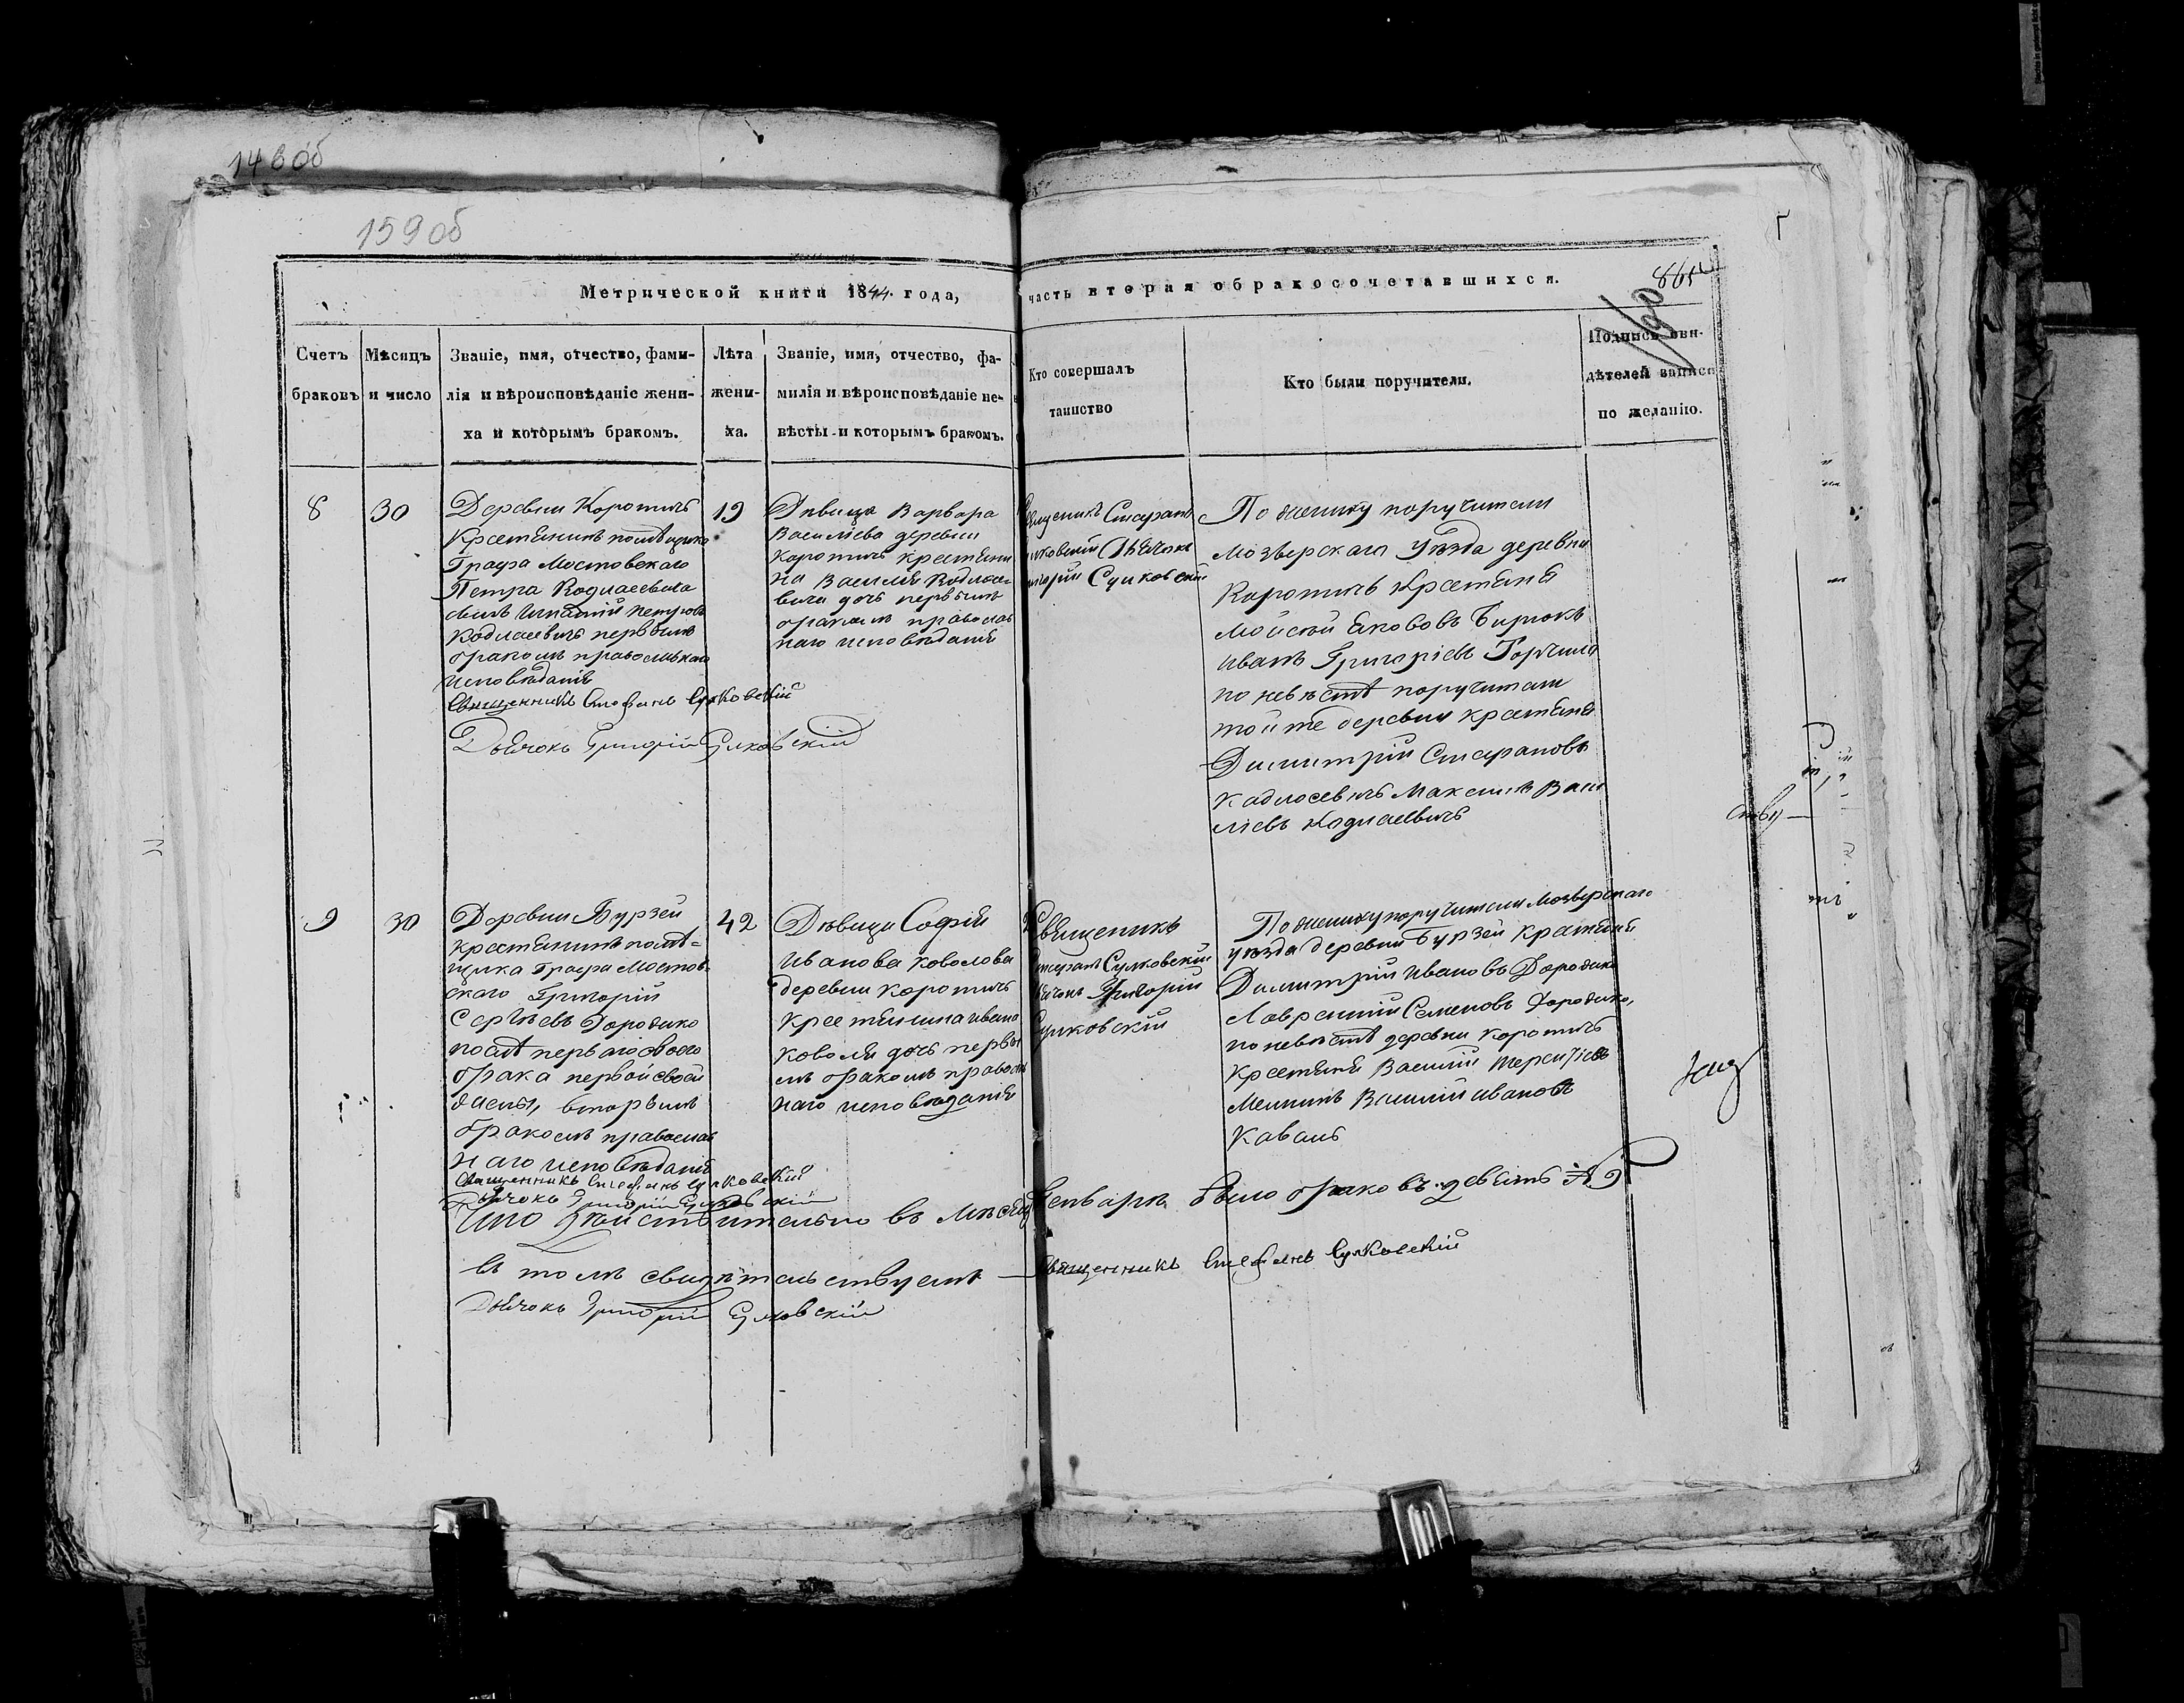 148об
159об
Метрической книги 1844 года,
часть вторая обракосочетавшихся.
865
Счетъ браковъ
Мѣсяцъ и число
Званіе, имя, отчество, фами-
лія и вѣроисповѣданіе жени-
ха и которымъ бракомъ.
Лѣта
жени-
ха.
Званіе, имя, отчество, фа-
милія и вѣроисповѣданіе не-
вѣсты и которымъ бракомъ.
Кто совершалъ
таинство
Кто были поручители.
Подпись сви-
дѣтелей записи
по желанію.
8
30
Деревни Коротичъ
Крестянинъ помѣщика
Графа Мостовскаго
Петра Кодлаевича
сынъ Игнатій Петровъ
Кодлаевичъ первымъ
бракомъ православнаго
исповѣданія
Священникъ Стефанъ Сулковскій
Дьячокъ Григорій Сулковскій
19
Дѣвица Варвара
Василіева деревни
Коротичъ крестяни
на Василія Кодлае-
вича дочь первымъ
бракомъ православ
наго исповѣданія
Стефанъ
Дьячокъ
Сулковскій
По жениху поручители
Мозырскаго Уѣзда деревни
Коротичъ Крестяня
Мойсей Яковъ Бирюкъ
Иванъ Григоріевъ
по невѣстѣ поручители
той же деревни крестяня
Димитрій Стефановъ
Кадлаевичъ Максимъ Васи
ліевъ Кодлаевичъ
9
30
Деревни Бурзеи
крестянинъ помѣ-
щика Графа Мостов-
скаго Григорій
Сергѣевъ Дородко
послѣ перваго своего
брака первой своей
жены, вторымъ
бракомъ православ
наго исповѣданія
Священникъ Стефанъ Сулковскій
Дьячокъ Григорій Сулковскій
42
Дѣвица Софія
Иванова Ковалова
деревни Коротичъ
Крестянина Ивана
Коваля дочь первы
мъ бракомъ правосла
наго исповѣданія
Священикъ
Стефанъ Сулковскій
Дьячокъ Григорій
Сулковскій
По жениху поручители Мозырскаго
уѣзда деревни Бурзеи крестяня
Димитрій Ивановъ Дородко
Лаврентій Семеновъ Дородко,
по невѣстѣ деревни Коротичъ
Крестяня Василій Терентіевъ
Василій Ивановъ
Коваль
Что дѣйствительно въ Мѣсяцѣ Генварѣ было браковъ девять № 9
въ томъ свидѣтельствуемъ — Священникъ Стефанъ Сулковскій
Дьячокъ Григорій Сулковскій